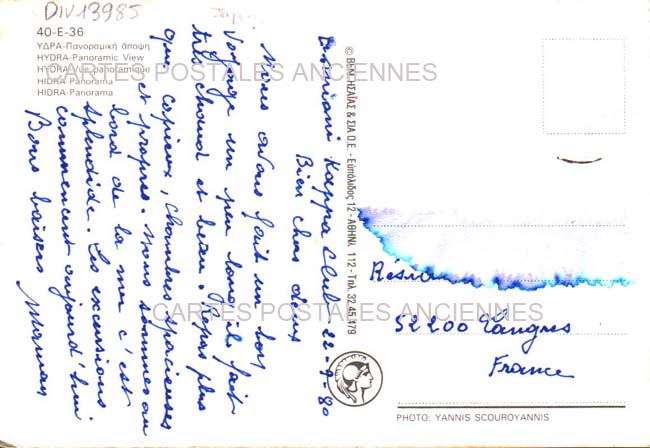 DIV13985
40-E-36
ΥΔΡΑ-Πανοραμική άποψη
HYDRA-Panoramic View
HYDRA-Vue panoramique
HIDRA-Panorama
HIDRA-Panorama
CARTES POSTALES ANCIENNES
Kappa Club 22-9-80
Bien chers deux
Nous avons fait un bon
voyage un peu long, il fait
très chaud et beau. Repas plus
que copieux, chambres spacieuses
et propres. Nous sommes au
bord de la mer c'est
splendide. Les excursions
commencent aujourd'hui
Bons baisers
Maman
© ΒΕΝ. ΗΣΑΪΑΣ & ΣΙΑ Ο.Ε. - Ευπόλιδος 12 - ΑΘΗΝΑΙ 112 - Τηλ. 32.45.479
52200 Langres
France
CARTES POSTALES ANCIENNES
PHOTO: YANNIS SCOUROYANNIS